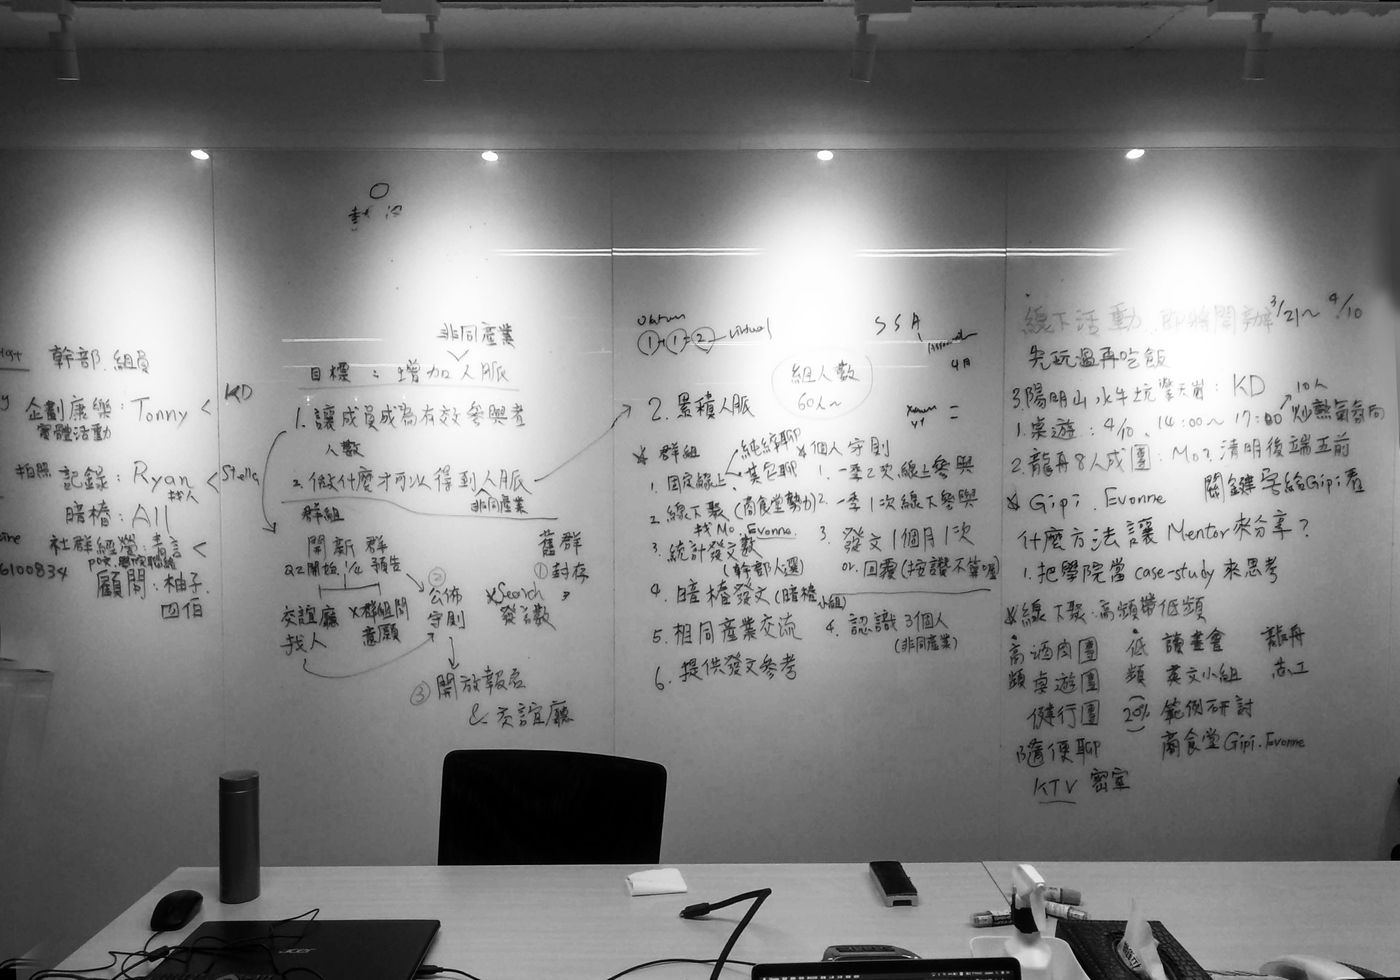 幹部 組員
企劃康樂：Tonny <
實體活動
拍照 記錄：Ryan <
找人
暗樁：All
社群經營：
顧問：柚子.
四伯
6100834
KD
Stella
非同產業
目標：增加人脈
1. 讓成員成為有效參與者
人數
2. 做什麼才可以得到人脈
非同產業
群組
開新群
Q2開始 預告
交誼廳
找人
X群組問
意願
②
公佈
守則
③開放報名
& 交誼廳
舊群
①封存
*Search
發言數
①+①=②
virtual
SSA
4月
組人數
60人~
2. 累積人脈
* 群組
1. 固定線上
純綜聊
其它聊
2. 線下聚 (商食堂勢力)
找Mo. Evonne.
3. 統計發文數
(幹部人選)
4. 暗樁發文 (暗樁小組)
5. 相同產業交流
6. 提供發文參考
* 個人守則
1. 一季2次線上參與
2. 一季1次線下參與
3. 發文1個月1次
or. 回覆 (按讚不算喔)
4. 認識3個人
(非同產業)
線下活動 即將開辦 3/21~4/10
先玩過再吃飯
3. 陽明山水牛坑擎天崗：KD
10人
1. 桌遊：4/10、14:00~17:00 炒熱氣氛向
2. 龍舟8人成團：Mo？清明後端五前
* Gipi. Evonne 關鍵字給Gipi看
什麼方法讓Mentor來分享？
1. 把學院當case-study來思考
* 線下聚：高頻帶低頻
高頻 酒肉團
桌遊團
健行團
隨便聊
KTV 密室
低頻 (20%) 讀書會 龍舟
英文小組 志工
範例研討
商食堂 Gipi. Evonne
acer